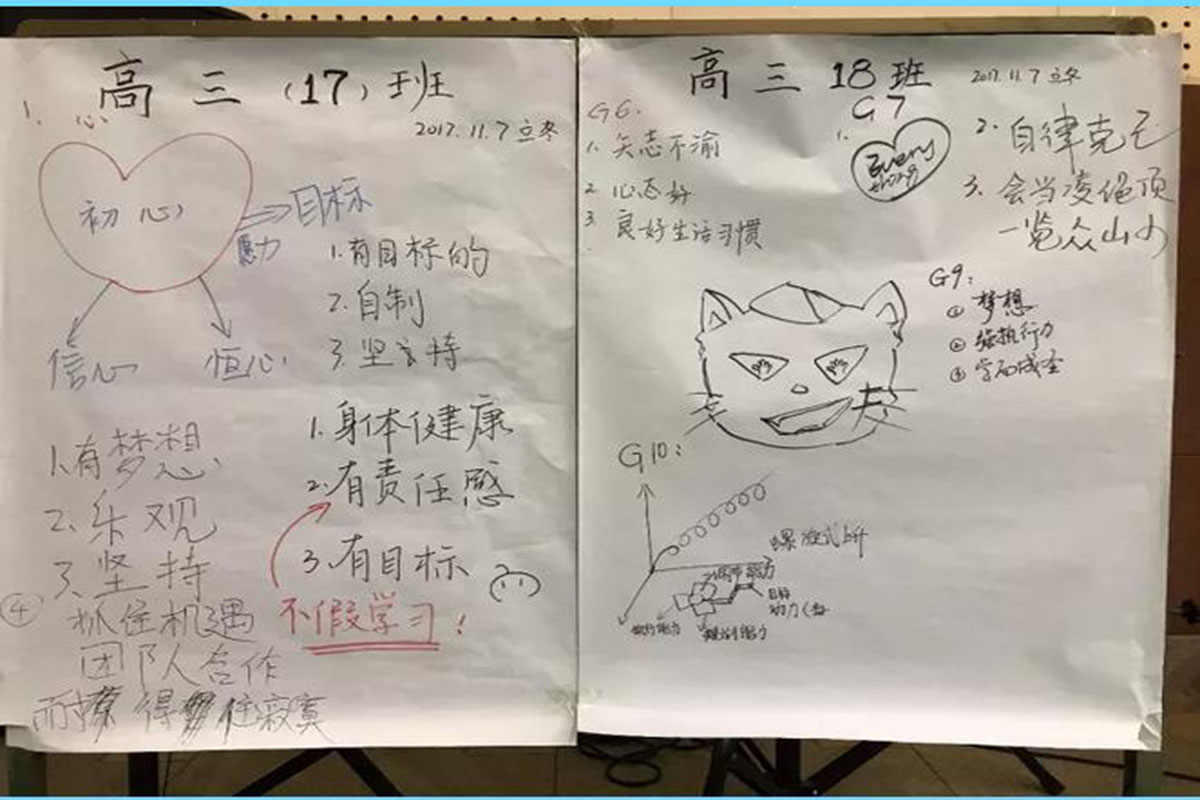 高三（17）班
2017.11.7 立冬
1. 心
初心
愿力
目标
信心
恒心
1.有目标的
2.自制
3.坚持
1.有梦想
2.乐观
3.坚持
④ 抓住机遇
团队合作
耐 得 住寂寞
1.身体健康
2.有责任感
3.有目标
不假学习！
高三 18班
2017.11.7 立冬
G6.
1. 矢志不渝
2. 心态好
3. 良好生活习惯
G7
1.
Every
thing
2. 自律克己
3. 会当凌绝顶
一览众山小
G9：
① 梦想
② 强执行力
③ 学而成圣
G10：
螺旋式上升
目标
动力
规划能力